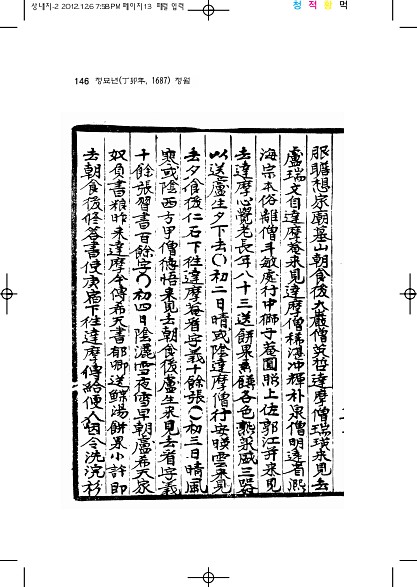 상내지-2 2012.12.6 7:58PM 페이지13 패럴 입력
청 적 황 먹
146 정묘년(丁卯年, 1687) 정월
服瞻想泉廟墓山朝食後大巖僧英哲達摩僧瑞瑛來見去
盧瑞文自達摩菴來見達摩僧稀湛冲輝朴泉僧明遠省熙
海宗本俗離僧斗敏處行中獅子菴圓照上佐郭江幷來見
去達摩心覺老長年八十三送餠果魚饌各色熟泉感三器
以送盧生夕下去〇初二日晴或陰達摩僧行安暎雲來見
去夕食後仁石下往達摩菴看字義十餘張〇初三日晴風
寒或陰西方甲僧德悟來見去朝食後盧生來見去看字義
十餘張習書百餘字〇初四日陰灑雪夜雪早朝盧希天家
奴負書粮昨來達摩今傳希天書郁卿送鯨湯餠果小許卽
去朝食後修答書使庚寤下往達摩傳給便人因令洗浣衫